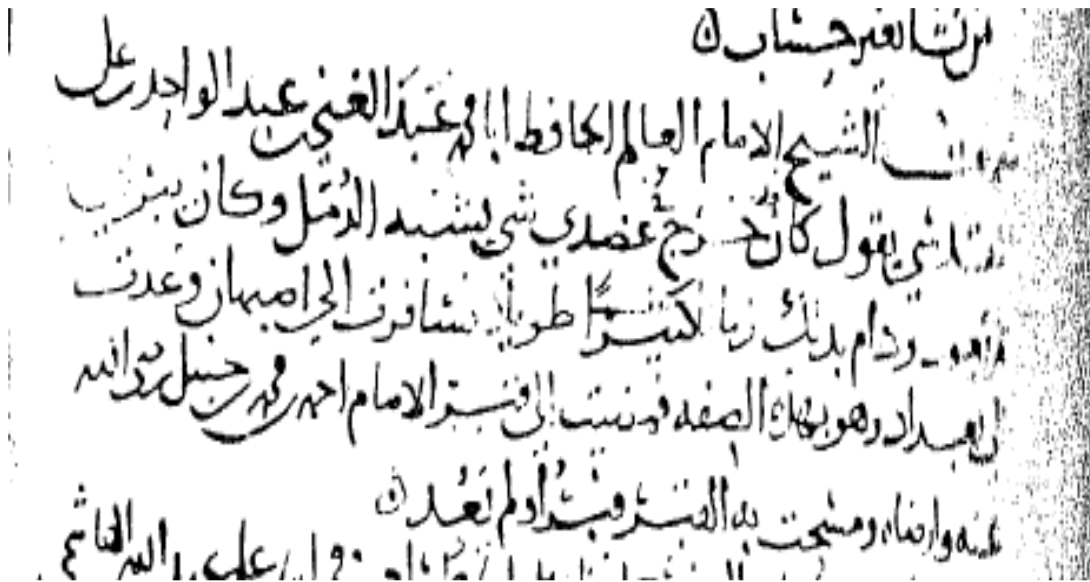 بغير حساب
الشيخ الامام العالم الحافظ ابا محمد عبد الغني بن عبد الواحد بن علي
يقول كان خرج في عضدي شي يشبه الدمل وكان
ودام بذلك زمانا كثيرا طويلا فسافرت الى اصبهان وعدت
الى بغداد وهو بهذه الصفة فمضيت الى قبر الامام احمد بن محمد بن حنبل رضي الله
عنه وارضاه ومسحت به القبر فبرأ ولم يعد